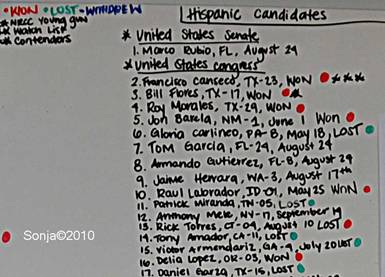 • WON • LOST - WITHDREW
* NRCC Young gun
** Watch List
* Contenders
Hispanic Candidates
* United States Senate
1. Marco Rubio, FL, August 24
* United States Congress
2. Francisco Canseco, TX-23, WON ***
3. Bill Flores, TX-17, WON
4. Roy Morales, TX-29, WON
5. Jon Barela, NM-1, June 1 Won
6. Gloria Carlineo, PA-8, May 18, LOST
7. Tom Garcia, FL-24, August 24
8. Armando Gutierrez, FL-8, August 24
9. Jaime Herrara, WA-3, August 17th
10. Raul Labrador, ID-01, May 25 WON
11. Patrick Miranda, TN-05, LOST
12. Anthony Mele, NY-17, September 14
13. Rick Torres, CT-04, August 10 LOST
14. Tony Amador, CA-11, LOST
15. Victor Armendariz, GA-4, July 20 LOST
16. Delia Lopez, OR-03, WON
17. Daniel Garza, TX-15, LOST
Sonja©2010